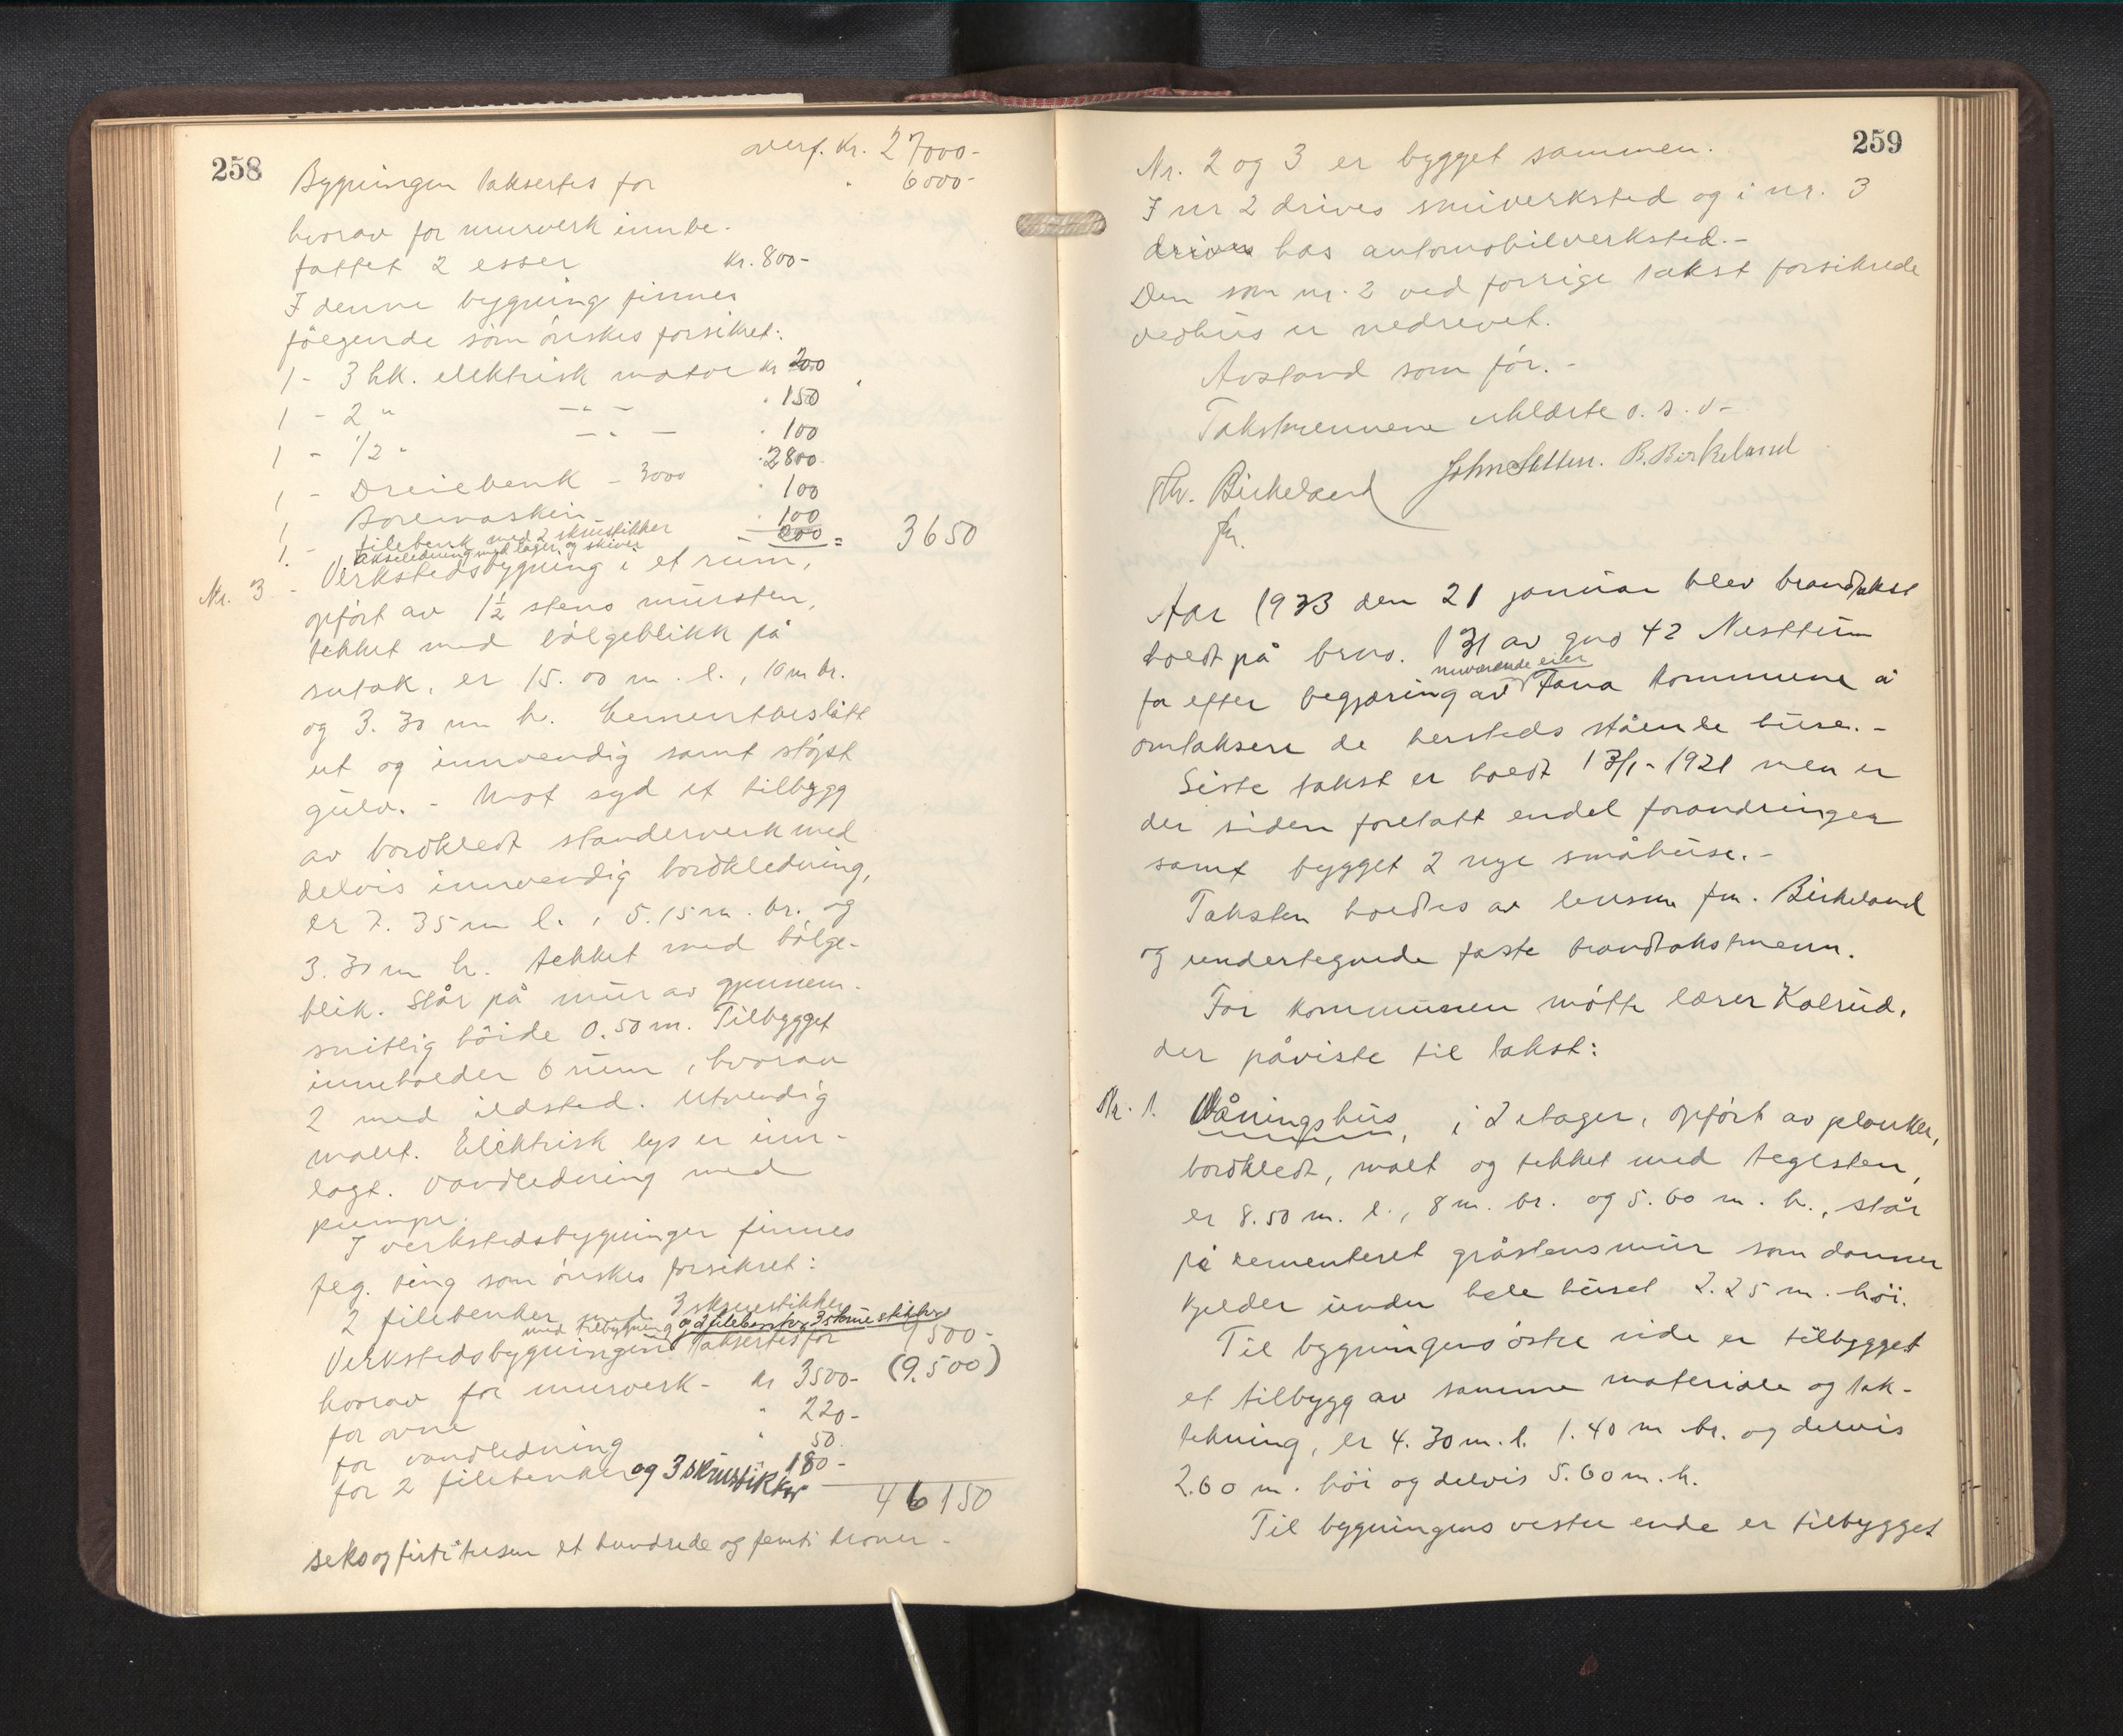 258
overf. kr. 27000-
Bygningen taksertes for " 6000-
hvorav for murverk innbe-
fattet 2 esser kr. 800-
I denne bygning finnes
følgende som ønskes forsikret:
1 - 3 hk. elektrisk motor kr 200
1 - 2 " - " - " 150
1 - 1/2 " - " - " 100
1 - Dreiebenk - 3000 " 2800
1 - Boremaskin " 100
1 - filebenk med 2 skrustikker " 100
1. akselledning med lager og skiver 200 = 3650
Nr. 3 - Verkstedsbygning i et rum,
opført av 1½ stens mursten,
tekket med bølgeblikk på
sutak, er 15.00 m. l., 10 m br.
og 3.30 m h. Cementbeslått
ut og innvendig samt støpt
gulv. - Mot syd et tilbygg
av bordkledt standerverk med
delvis innvendig bordkledning,
er 7.35 m l., 5.15 m. br. og
3.30 m h. tekket med bølge-
blik. Står på mur av gjennem-
snitlig høide 0.50 m. Tilbygget
inneholder 6 rum, hvorav
2 med ildsted. Utvendig
malt. Elektrisk lys er inn-
lagt. Vandledning med
pumpe.
I verkstedsbygningen finnes
følg. ting som ønskes forsikret:
2 filebenker med 3 skruestikker
med tilbygning og 2 filebenker 3 skruestikker
Verkstedsbygningen taksertes for 9500-
hvorav for murverk - kr 3500- (9.500)
for ovne " 220-
for vandledning " 50.
for 2 filebenker og 3 skrustikker 180-
46150
seks og førti tusen et hundrede og femti kroner -
259
Nr. 2 og 3 er bygget sammen.
I nr 2 drives smiverksted og i nr. 3
drives has automobilverksted.-
Den som nr. 2 ved forrige takst forsikrede
vedhus er nedrevet.
Avstand som før. -
Takstmennene erklærte o. s. v-
Th. Birkeland John Sætten. B. Birkeland
fm.
Aar 1933 den 21 januar blev brandtakst
holdt på brno. 131 av gno 42 Nesttun
nuværende eier
for efter begjæring av Fana kommune å
omtaksere de hersteds stående huse.-
Siste takst er holdt 13/1-1921 men er
der siden foretatt endel forandringer
samt bygget 2 nye småhuse.-
Taksten holdtes av lensm fm. Birkeland
og undertegnede faste brandtakstmenn.
For kommunen møtte lærer Kalrud,
der påviste til takst:
Nr. 1. Våningshus, i 2 etager, opført av planker,
bordkledt, malt og tekket med teglsten,
er 8.50 m. l., 8 m. br. og 5.60 m. h., står
på cementeret gråstensmur som danner
kjelder under hele huset 2.25 m. høi.
Til bygningens østre side er tilbygget
et tilbygg av samme materiale og tak-
tekning, er 4.30 m. l. 1.40 m br. og delvis
2.60 m. høi og delvis 5.60 m. h.
Til bygningens vestre ende er tilbygget